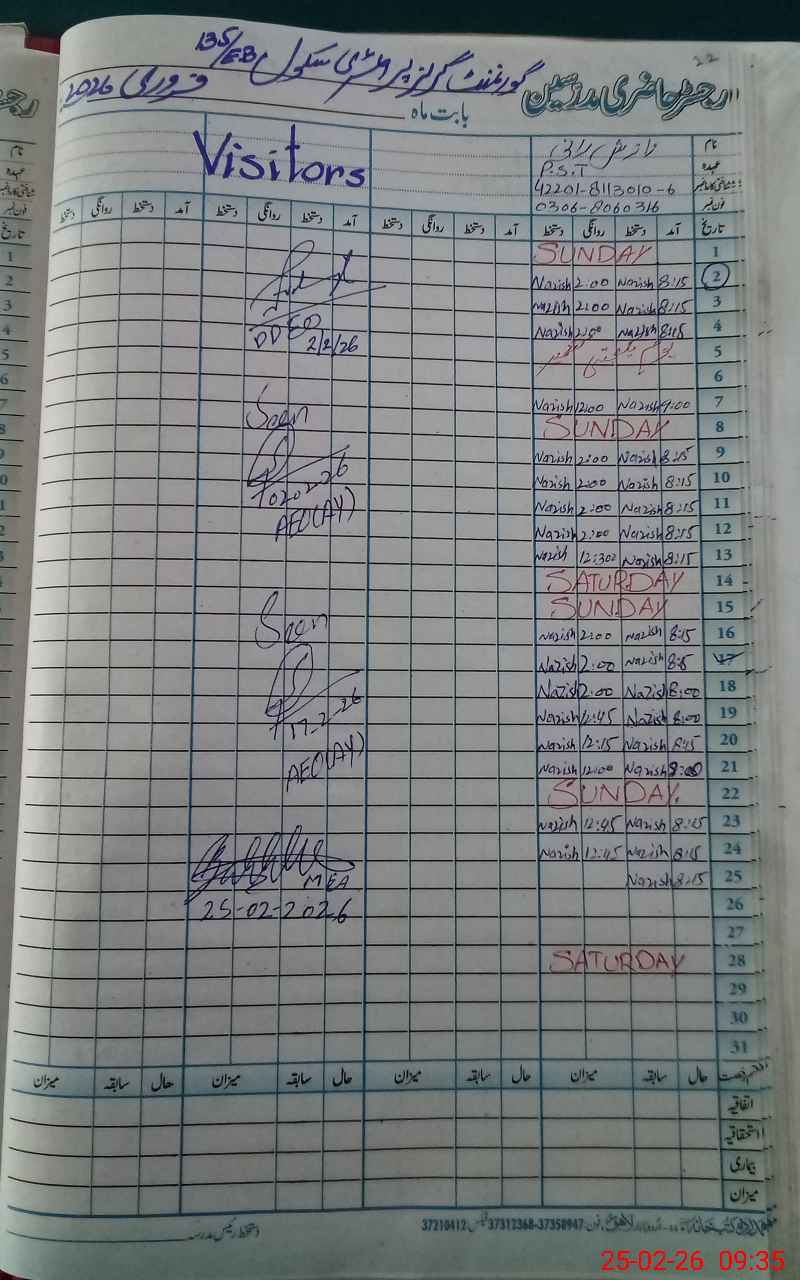 22
رجسٹر حاضری مدرسین
گورنمنٹ گرلز پرائمری سکول 135/EB
بابت ماہ فروری 2026
Visitors
نام نازش رانی
عہدہ P.S.T
شناختی کارڈ نمبر 42201-8113010-6
فون نمبر 0306-8060316
تاریخ آمد دستخط روانگی دستخط آمد دستخط روانگی دستخط آمد دستخط روانگی دستخط آمد دستخط روانگی دستخط
1 SUNDAY
2 8:15 Nazish 2:00 Nazish
3 8:15 Nazish 2:00 Nazish
4 8:15 Nazish 2:00 Nazish
DDEO
2/2/26
5 یوم یکجہتی کشمیر
6
7 9:00 Nazish 12:00 Nazish
Seen
8 SUNDAY
9 8:15 Nazish 2:00 Nazish
10 8:15 Nazish 2:00 Nazish
02-02-26
11 8:15 Nazish 2:00 Nazish
AEO(AY)
12 8:15 Nazish 2:00 Nazish
13 8:15 Nazish 12:30 Nazish
14 SATURDAY
15 SUNDAY
Seen
16 8:15 Nazish 2:00 Nazish
17 8:15 Nazish 2:00 Nazish
18 8:00 Nazish 2:00 Nazish
17-2-26
19 8:00 Nazish 12:45 Nazish
20 8:45 Nazish 12:15 Nazish
AEO(AY)
21 8:00 Nazish 12:00 Nazish
22 SUNDAY
23 8:15 Nazish 12:45 Nazish
24 8:15 Nazish 12:45 Nazish
25 8:15 Nazish
MEA
26
25-02-2026
27
28 SATURDAY
29
30
31
حال سابقہ میزان حال سابقہ میزان حال سابقہ میزان حال سابقہ میزان
اتفاقیہ
استحقاقیہ
بیماری
میزان
فون: 37358947-37312368 فیکس: 37210412
دستخط رئیس مدرسہ
25-02-26 09:35